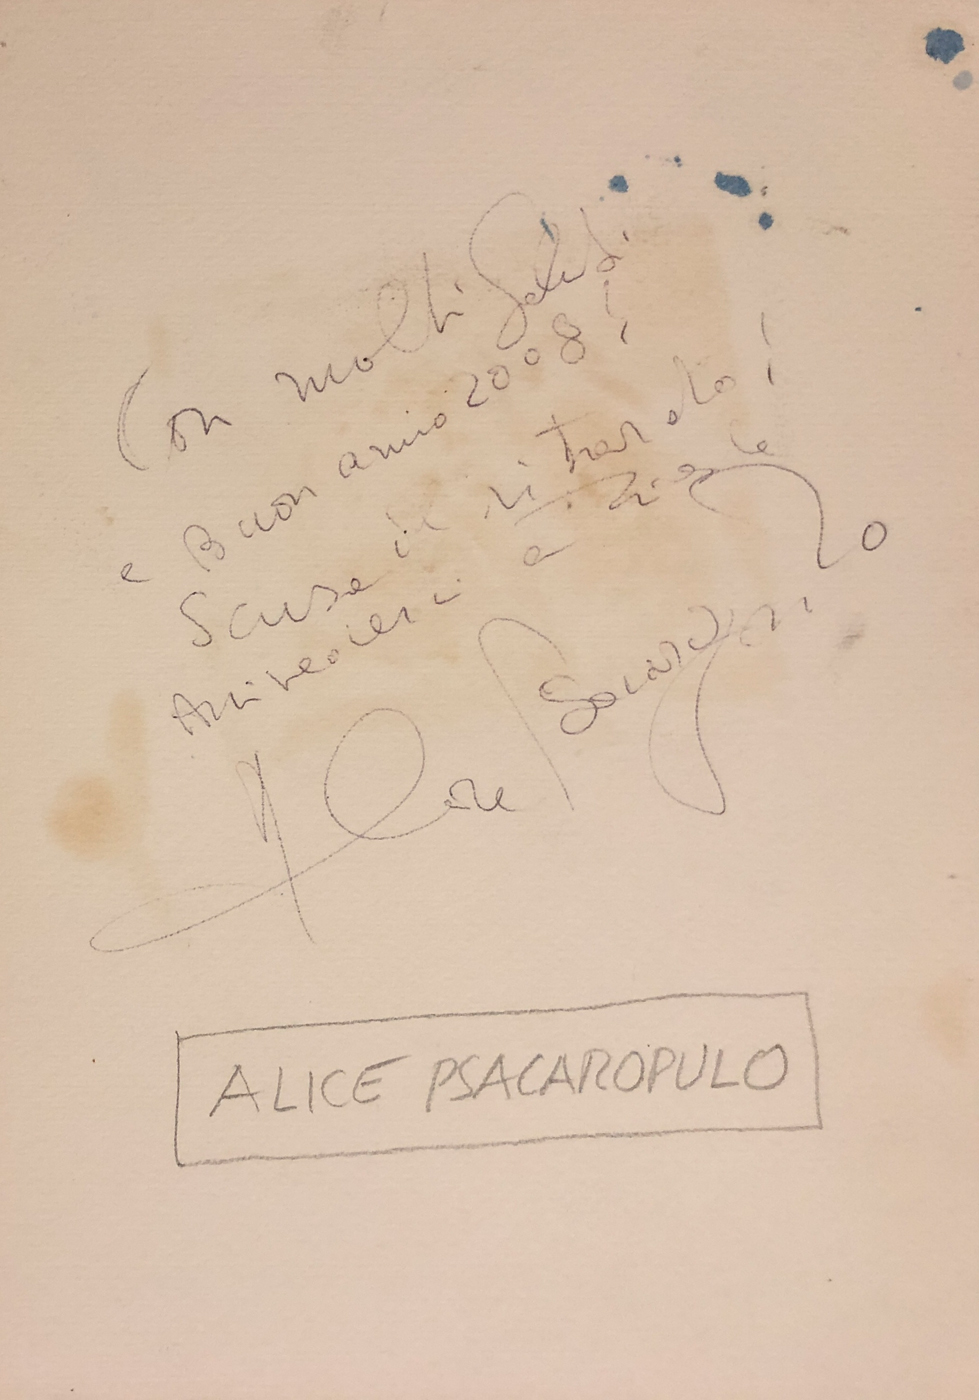 Con molti Saluti
e Buon anno 2008!
Scusa il ritardo!
Arrivederci a Trieste
Alice Psacaropulo
ALICE PSACAROPULO